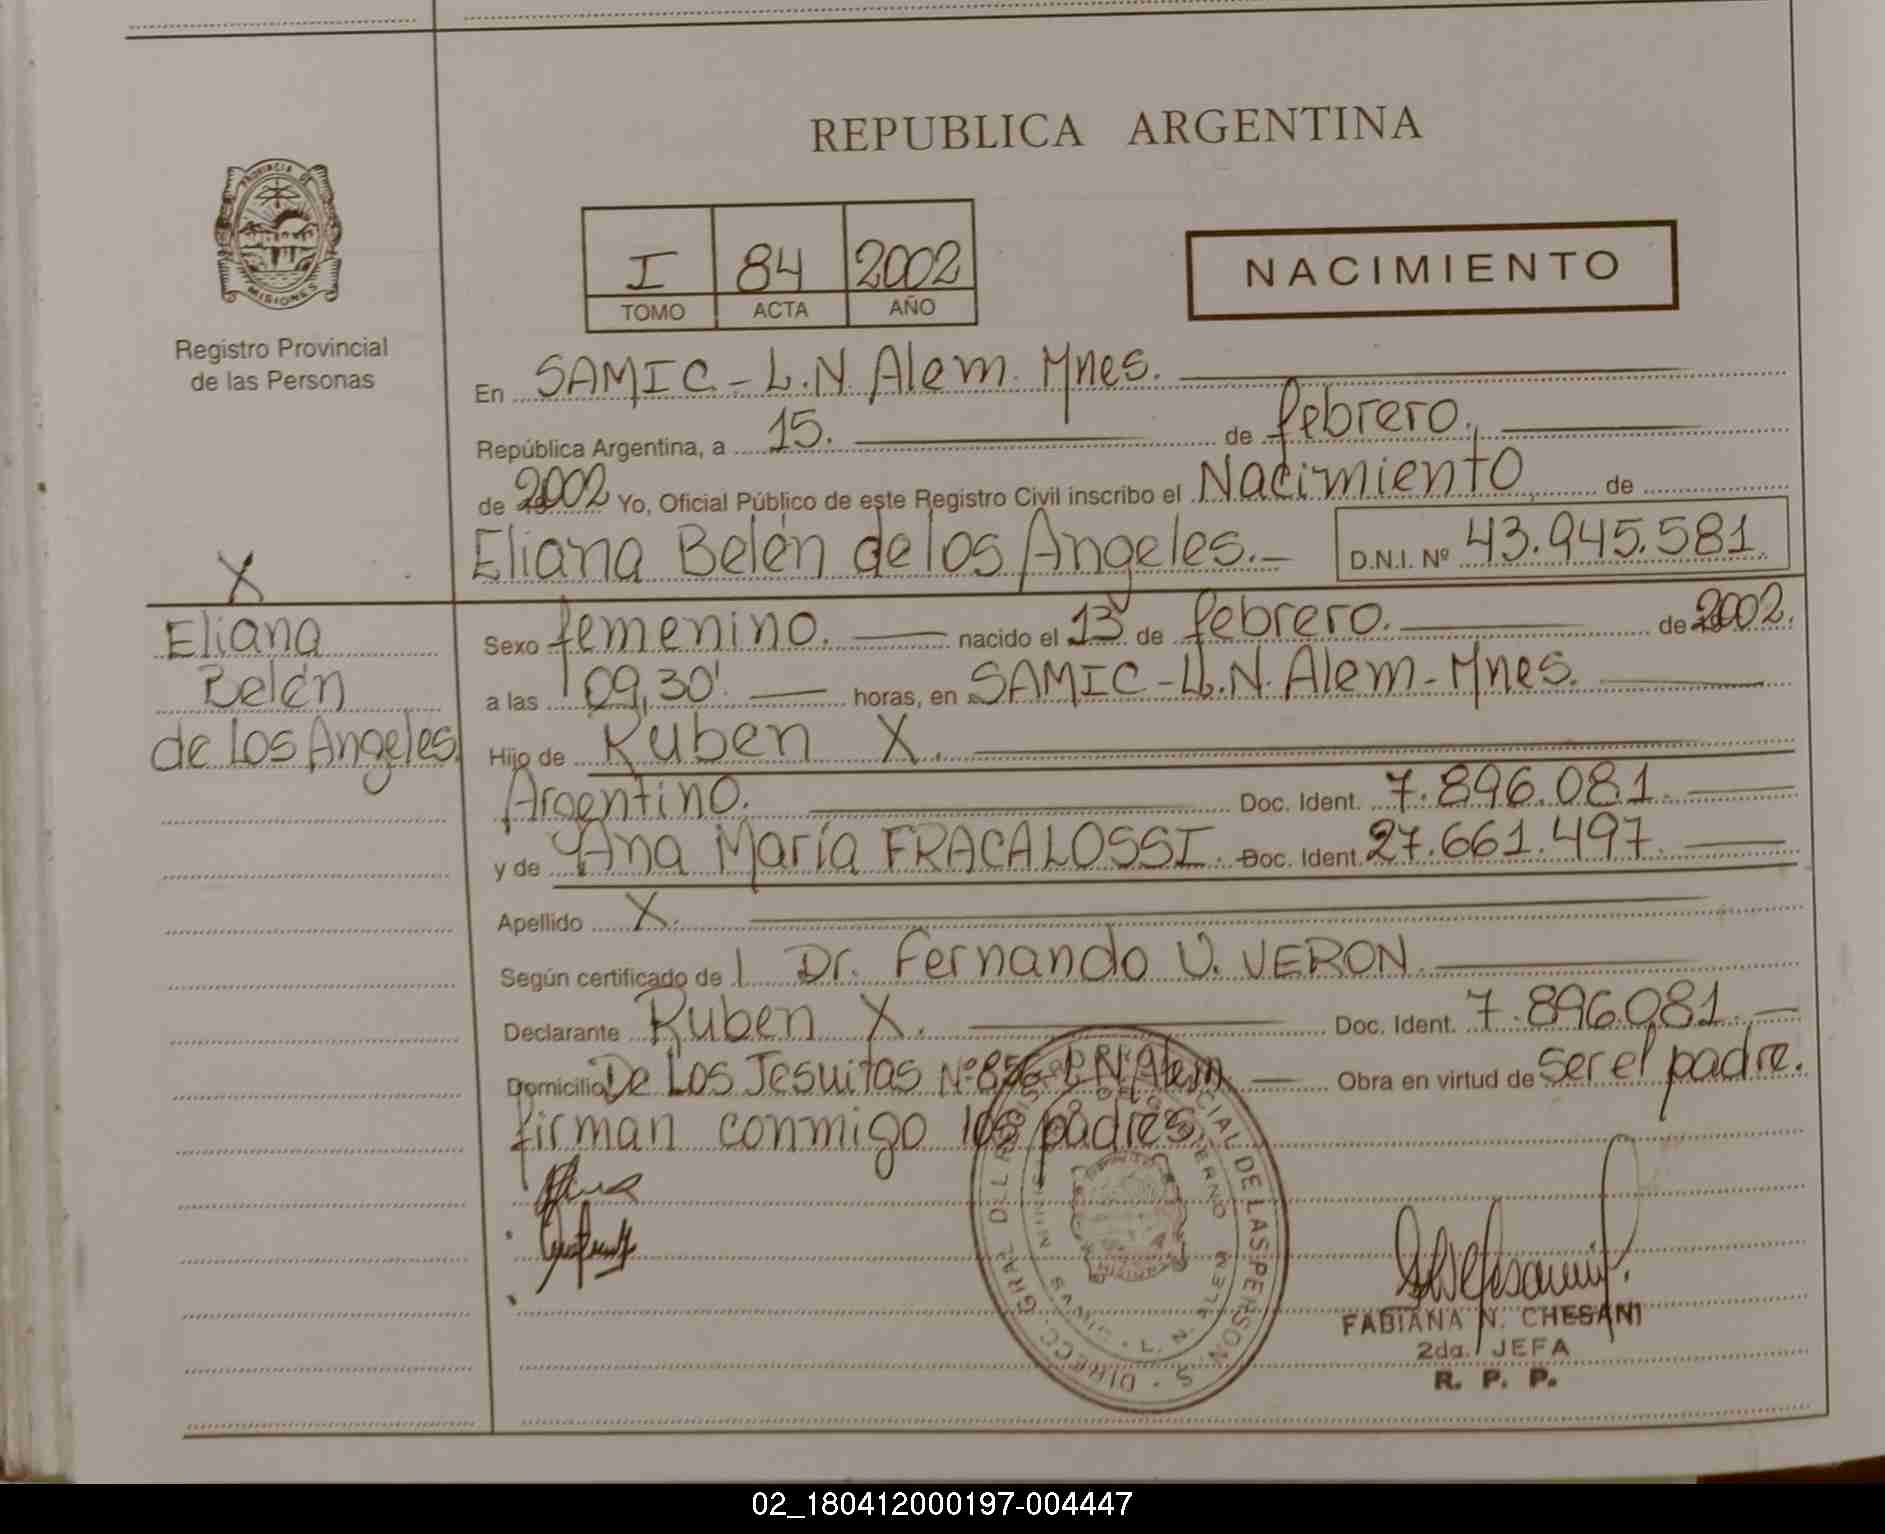 REPUBLICA ARGENTINA
PROVINCIA DE
MISIONES
Registro Provincial
de las Personas
I 84 2002
TOMO ACTA AÑO
NACIMIENTO
En SAMIC - L.N. Alem. Mnes.
República Argentina, a 15. de febrero.
de 2002 Yo, Oficial Público de este Registro Civil inscribo el Nacimiento de
Eliana Belén de los Angeles. D.N.I. Nº 43.945.581
X
Eliana
Belén
de Los Angeles.
Sexo femenino. nacido el 13 de febrero. de 2002.
a las 09,30'. horas, en SAMIC - L.N. Alem - Mnes.
Hijo de Ruben X.
Argentino. Doc. Ident. 7.896.081.
y de Ana María FRACALOSSI. Doc. Ident. 27.661.497.
Apellido X.
Según certificado de l Dr. Fernando U. VERON.
Declarante Ruben X. Doc. Ident. 7.896.081.
Domicilio De Los Jesuitas Nº 856 L N Alem Obra en virtud de ser el padre.
firman conmigo los padres.
DIRECC. GRAL DE LAS PERSONAS
L. N. ALEM
FABIANA N. CHESANI
2da. JEFA
R. P. P.
02_180412000197-004447